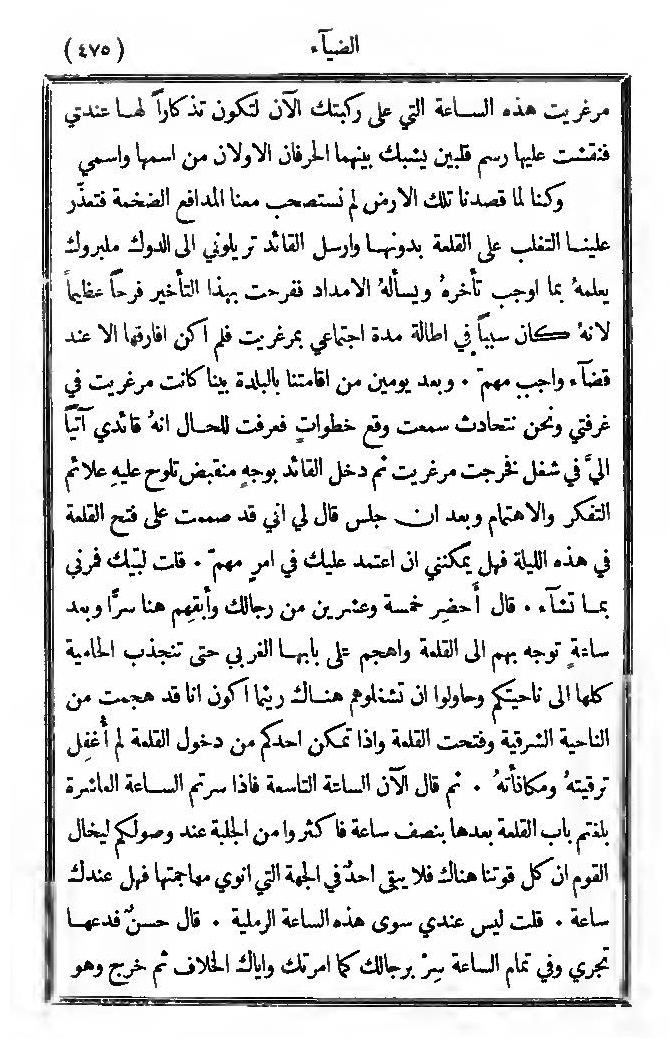 الضيآء
(٤٧٥)
مرغريت هذه الساعة التي على ركبتك الآن لتكون تذكاراً لها عندي
فنقشت عليها رسم قلبين يشبك بينهما الحرفان الاولان من اسمها واسمي
وكنا لما قصدنا تلك الارض لم نستصحب معنا المدافع الضخمة فتعذّر
علينا التغلب على القلعة بدونها وارسل القائد تريلوني الى الدوك ملبروك
يعلمهُ بما اوجب تأخرهُ ويسألهُ الامداد ففرحت بهذا التأخير فرحاً عظيماً
لانهُ كان سبباً في اطالة مدة اجتماعي بمرغريت فلم اكن افارقها الا عند
قضآء واجبٍ مهمّ ٠ وبعد يومين من اقامتنا بالبلدة بينا كانت مرغريت في
غرفتي ونحن نتحادث سمعت وقع خطواتٍ فعرفت للحال انهُ قائدي آتياً
اليَّ في شغل فخرجت مرغريت ثم دخل القائد بوجهٍ منقبض تلوح عليهِ علائم
التفكر والاهتمام وبعد ان جلس قال لي اني قد صممت على فتح القلعة
في هذه الليلة فهل يمكنني ان اعتمد عليك في امرٍ مهمّ ٠ قلت لبّيك فمرني
بما تشآء ٠ قال أَحضِر خمسة وعشرين من رجالك وأبقهِم هنا سرًّا وبعد
ساعةٍ توجه بهم الى القلعة واهجم على بابها الغربي حتى تنجذب الحامية
كلها الى ناحيتكم وحاولوا ان تشغلوهم هناك ريثما اكون انا قد هجمت من
الناحية الشرقية وفتحت القلعة واذا تمكن احدكم من دخول القلعة لم أُغفِل
ترقيتهُ ومكافأتهُ ٠ ثم قال الآن الساعة التاسعة فاذا سرتم الساعة العاشرة
بلغتم باب القلعة بعدها بنصف ساعة فاكثروا من الجلبة عند وصولكم ليخال
القوم ان كل قوتنا هناك فلا يبقى احدٌ في الجهة التي انوي مهاجمتها فهل عندك
ساعة ٠ قلت ليس عندي سوى هذه الساعة الرملية ٠ قال حسنٌ فدعها
تجري وفي تمام الساعة سِرْ برجالك كما امرتك واياك الخلاف ثم خرج وهو